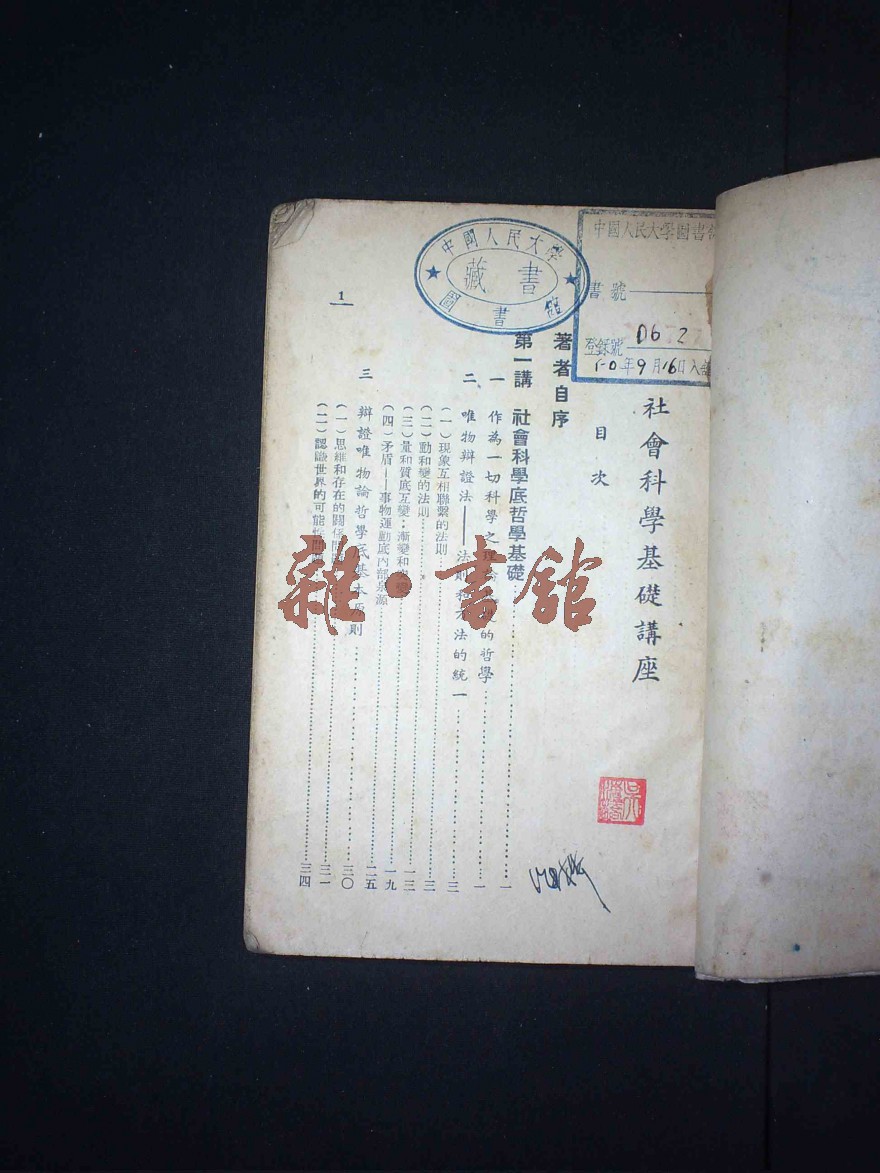 社會科學基礎講座
目次
著者自序
第一講 社會科學底哲學基礎……一
一 作為一切科學之理論 的哲學……一
二、唯物辯證法——法則和方法的統一……三
(一)現象互相聯繫的法則……三
(二)動和變的法則……一三
(三)量和質底互變:漸變和突變……一九
(四)矛盾——事物運動底內部泉源……二五
三 辯證唯物論哲學底基本原則……三〇
(一)思維和存在的關係問題……三一
(二)認識世界的可能性問題……三四
1
中國人民大學
藏書
圖書館
中國人民大學圖書館
書號
登錄號 D6 2
50年9月16日入
雜·書館